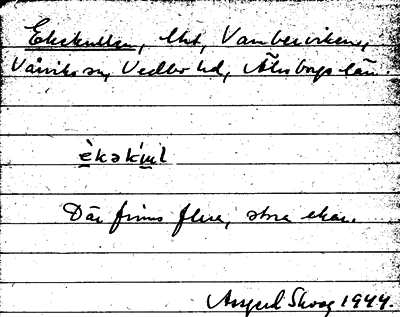 Ekekullen, lht, Vamberviken,
Värviks sn, Vedbo hd, Älvsborgs län.
èkәkúl
Där finns flera, stora ekar.
August Skoog 1944.